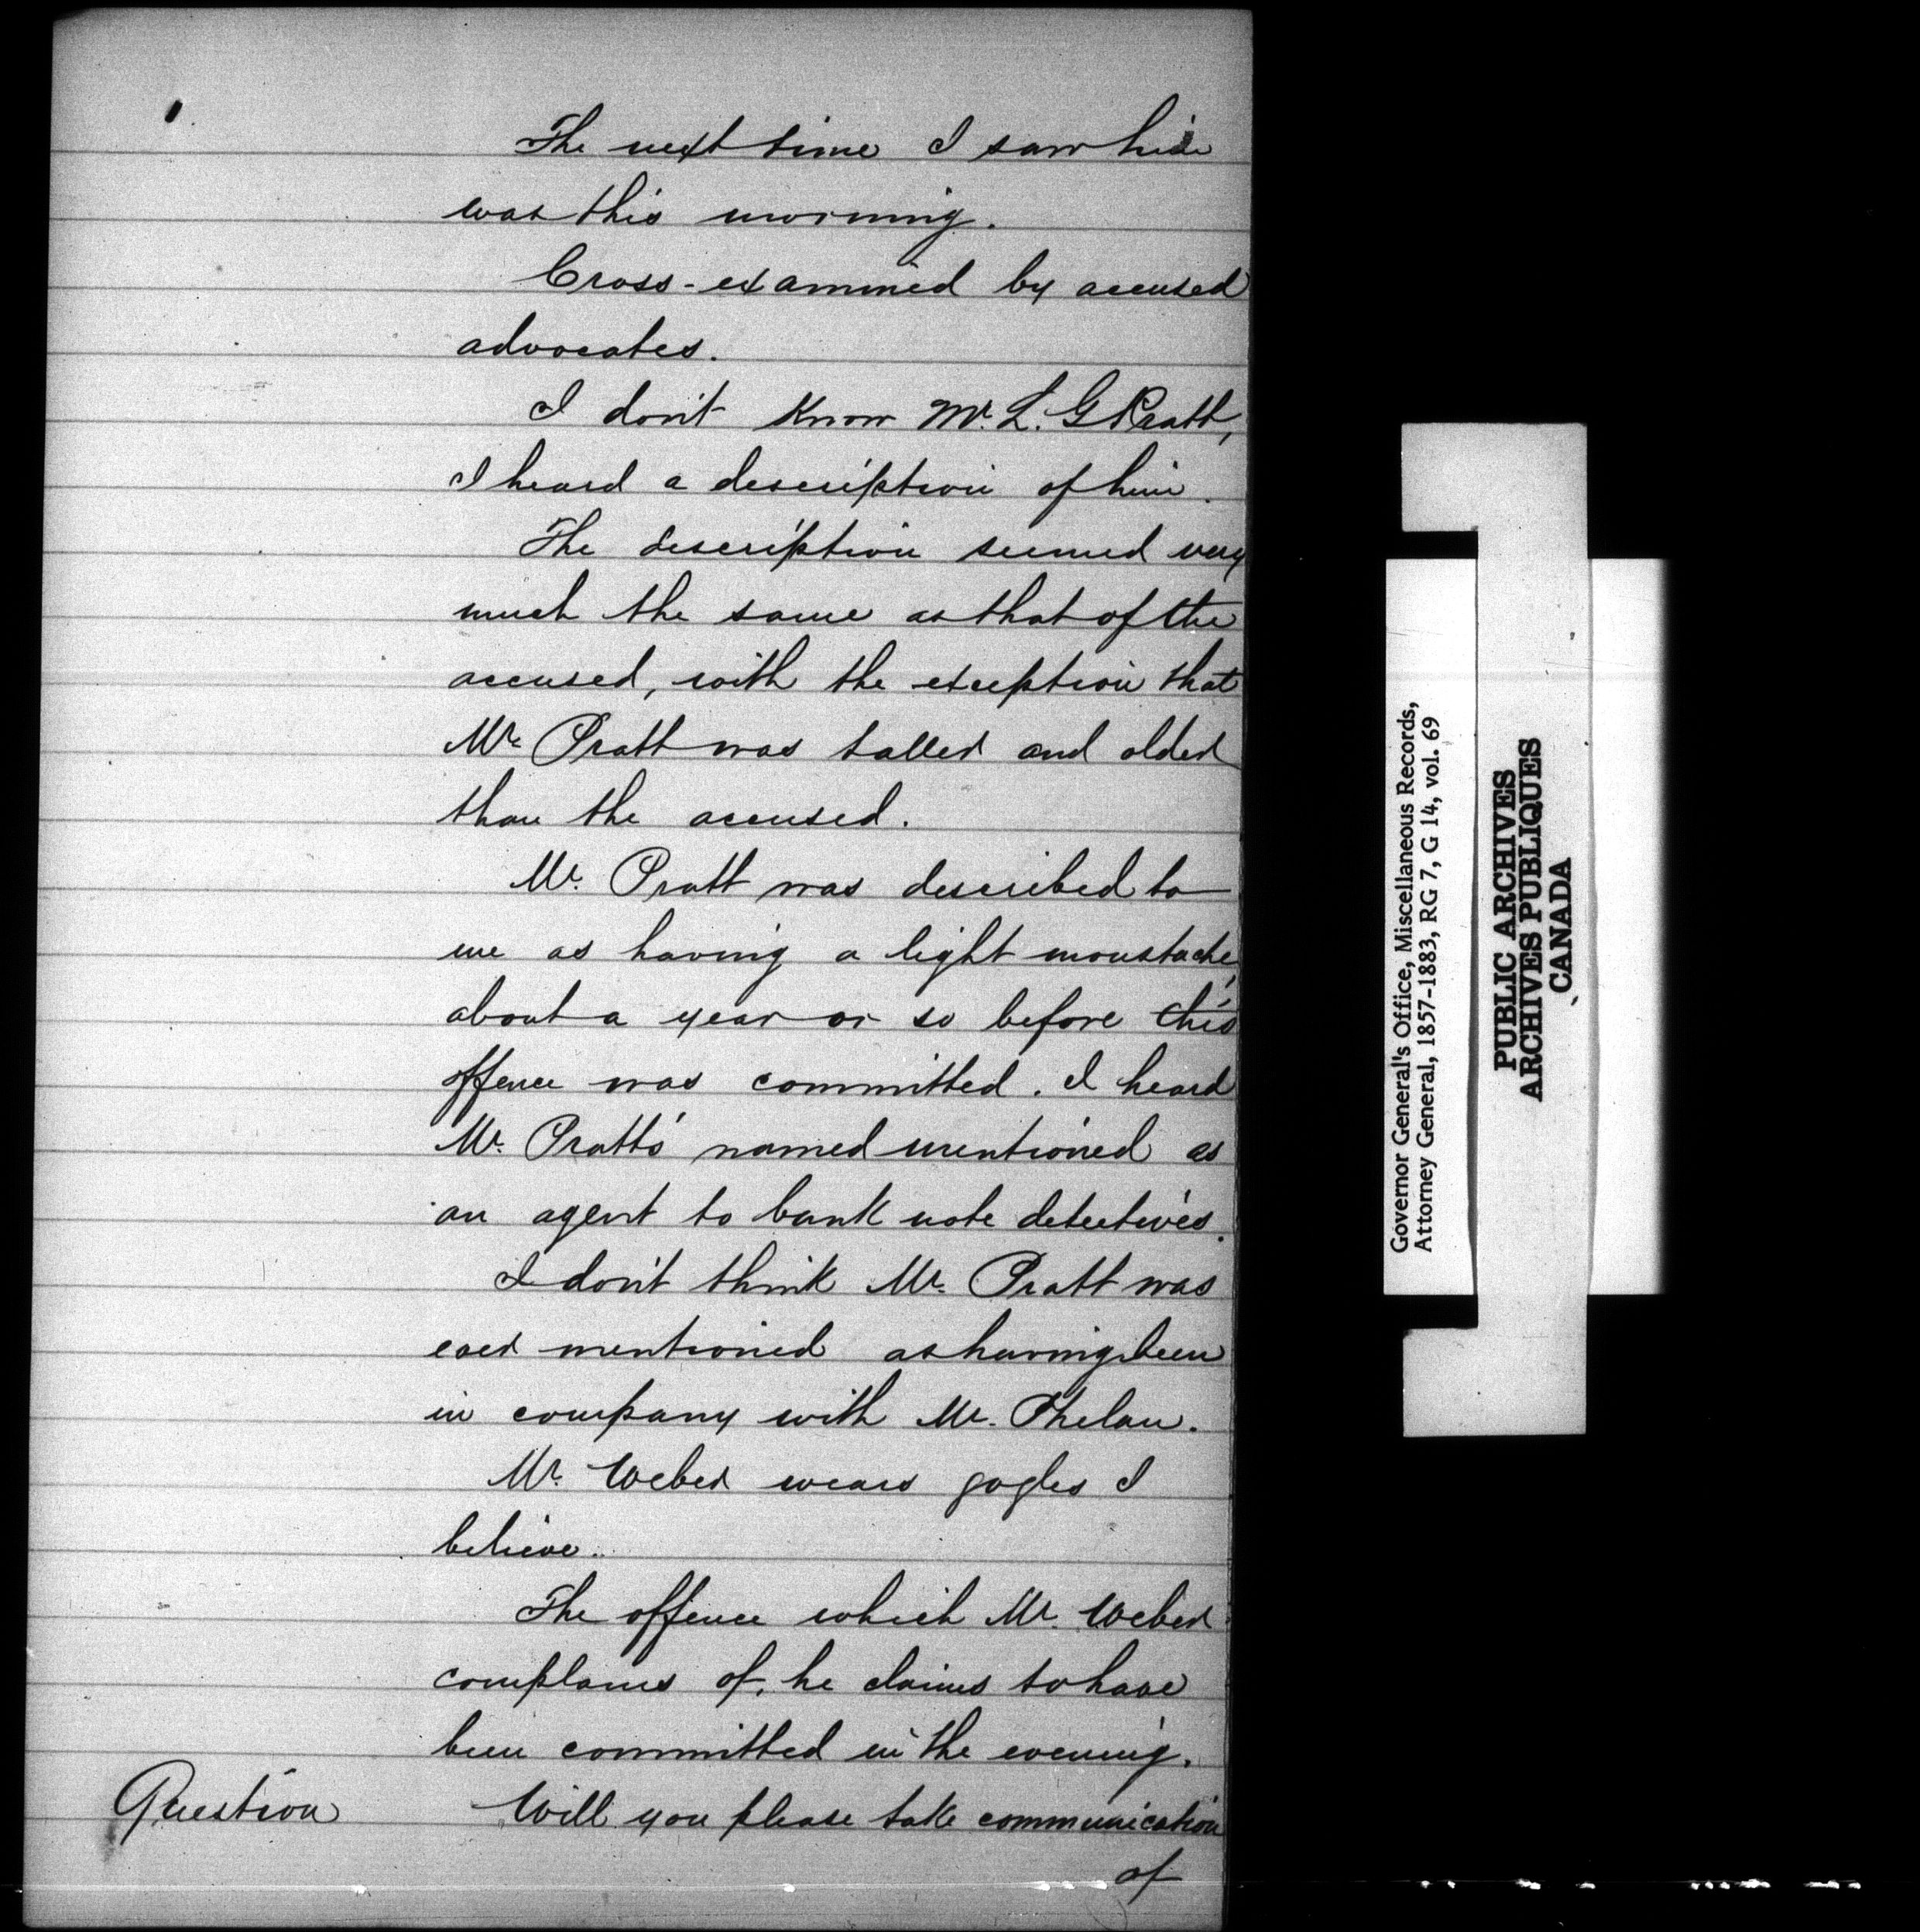 The next time I saw him
was this morning.
Cross-examined by accused
advocates.
I don't Know Mr. L. G Pratt,
I heard a description of him.
The description seemed very
much the same as that of the
accused, with the exception that
Mr. Pratt was taller and older
than the accused.
Mr. Pratt was described to
me as having a light moustache,
about a year or so before this
offence was committed. I heard
Mr. Pratt's named mentioned as
an agent to bank note detectives.
I don't think Mr. Pratt was
ever mentioned as having been
in company with Mr. Phelan.
Mr. Weber wears gogles I
believe.
The offence which Mr. Weber
complains of, he claims to have
been committed in the evening.
Question Will you please take communication
of
Governor General's Office, Miscellaneous Records,
Attorney General, 1857-1883, RG 7, G 14, vol. 69
PUBLIC ARCHIVES
ARCHIVES PUBLIQUES
CANADA